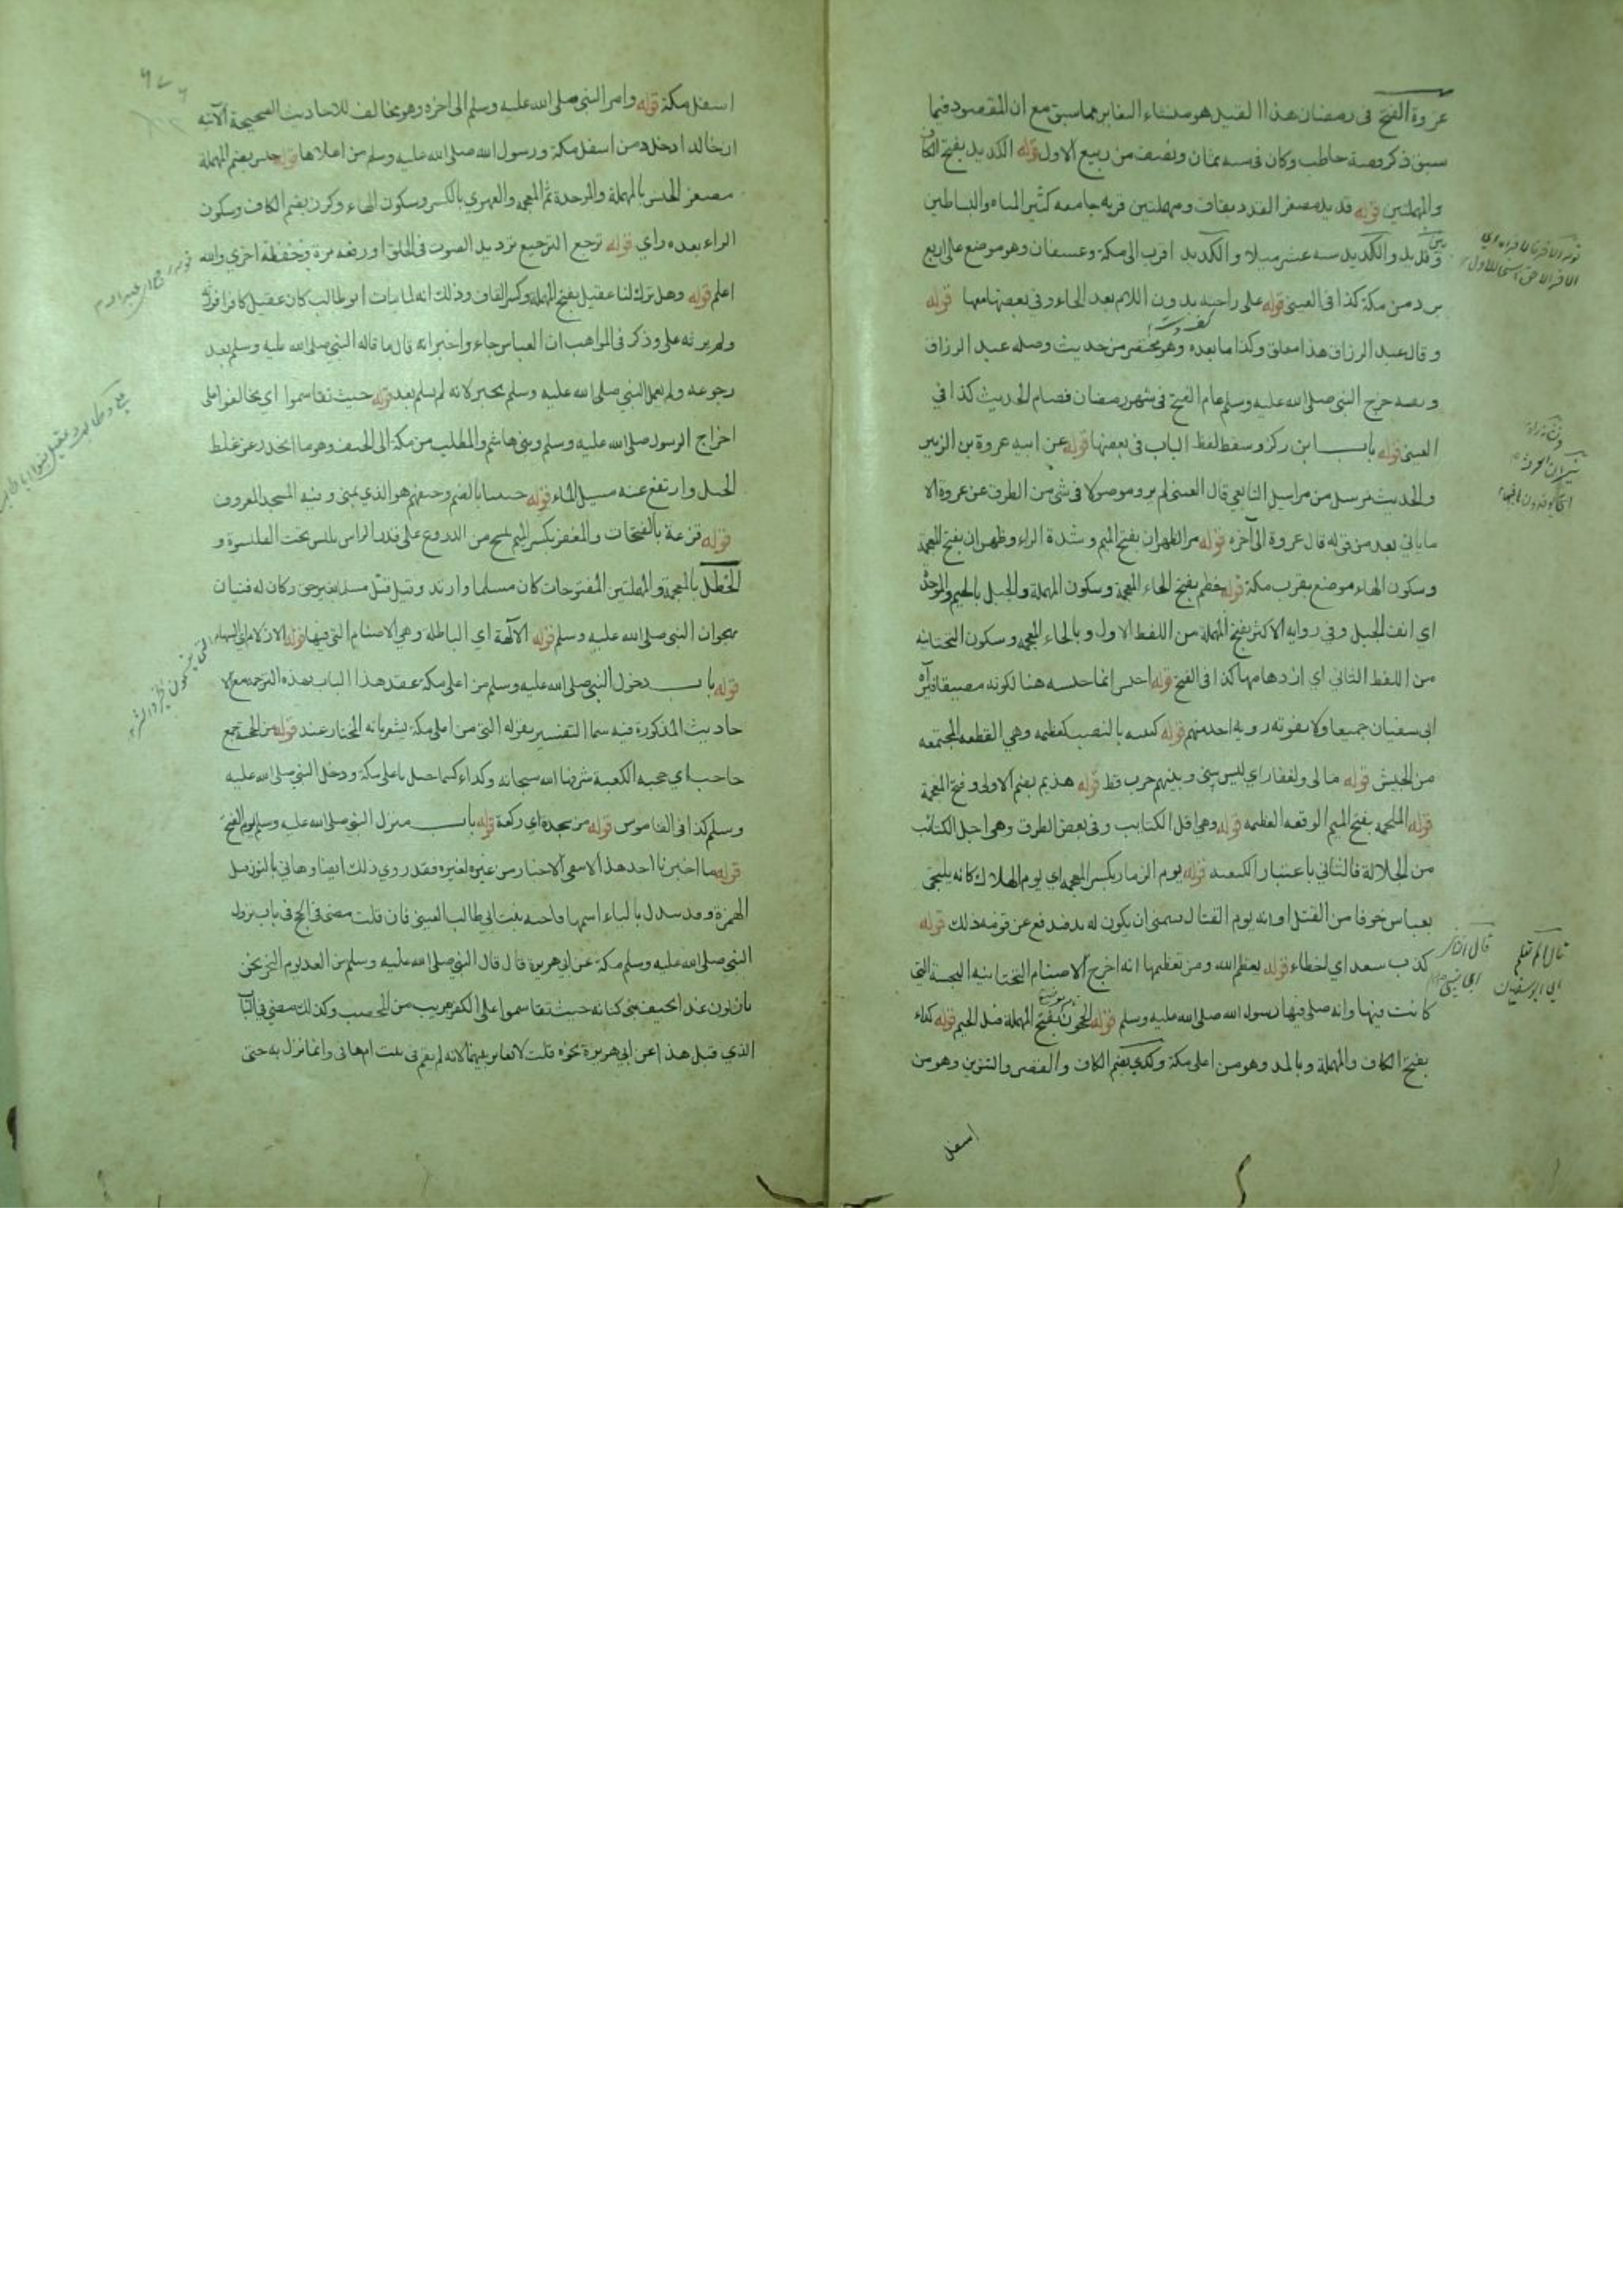 عروة الفتح فى رمضان هذا القيد هو منشاء التغاير مما سبق مع ان المقصود فيما
سبق ذكر قصة حاطب وكان فى سنه ثمان ونصف من ربيع الاول قوله الكديد بفتح الكاف
والمهملتين قوله قديد مصغر القدد بقاف ومهملتين قريه جامعه كثير المياه والبساطين
وقديد والكديد سته عشر ميلا والكديد اقرب الى مكة وعسفان وهو موضع على اربع
برد من مكة كذا فى العينى قوله على راحته بدون اللام بعد الحاء وفى بعضها معها قوله
وقال عبد الرزاق هذا معلق وكذا ما بعده وهو مختصر من حديث وصله عبد الرزاق
ونصه خرج النبى صلى الله عليه وسلم عام الفتح فى شهر رمضان فصام الحديث كذا في
العينى قوله باب اين ركز وسقط لفظ الباب فى بعضها قوله عن ابيه عروة بن الزبير
والحديث مرسل من مراسيل التابعي قال العينى لم يرو موصولا فى شئ من الطرق عن عروة الا
ما ياتي بعد من قوله قال عروة الى آخره قوله مر الظهران بفتح الميم وشدة الراء وظهران بفتح المعجمة
وسكون الهاء موضع بقرب مكة قوله خطم بفتح الخاء المعجمة وسكون المهملة والجبل بالجيم والموحدة
اي انف الجبل وفى روايه الاكثر بفتح المهملة من اللفظ الاول وبالخاء المعجمه وسكون التحتانيه
من اللفظ الثانى اي ازدحامها كذا فى الفتح قوله احبس انما حبسه هنا لكونه مضيقا ليراه
ابى سفيان جميعا ولا يفوته روية احد منهم قوله كتيبه بالنصب كعظيمه وهي القطعه المجتمعه
من الجيش قوله ما لى ولغفار اي ليس بينى وبينهم حرب قط قوله هذيم بضم الاولى وفتح المعجمة
قوله الملحمه بفتح الميم الوقعه العظيمه قوله وهي اقل الكتايب وفى بعض الطرق وهى اجل الكتائب
من الجلالة فالثاني باعتبار الكيفيه قوله يوم الزمار بكسر المعجمه اي يوم الهلاك كانه يلتجئ
بعباس خوفا من القتل او انه يوم القتال فتمنى ان يكون له يد فيدفع عن قومه ذلك قوله
كذب سعد اي اخطاء قوله يعظم الله ومن تعظيمها انه اخرج الاصنام التحتانيه النجسة التي
كانت فيها وانه صلى فيها رسول الله صلى الله عليه وسلم قوله الحجون بفتح المهملة قبل الجيم قوله كداء
بفتح الكاف والمهملة وبالمد وهو من اعلى مكة وكدي بضم الكاف والقصر والتنوين وهو من
اسفل
قال الم تعلم
اي ابو سفيان
اسفل مكة قوله وامر النبى صلى الله عليه وسلم الى اخره وهو مخالف للاحاديث الصحيحة الآتيه
ان خالدا دخل من اسفل مكة ورسول الله صلى الله عليه وسلم من اعلاها قوله حبيش بضم المهملة
مصغر الحبش بالمهملة والموحدة ثم المعجمه والفهري بالكسر وسكون الهاء وكرز بضم الكاف وسكون
الراء بعده زاي قوله ترجع الترجيع ترديد الصوت فى الحلق او رفعه مرة وخفظه اخرى والله
اعلم قوله وهل ترك لنا عقيل بفتح المهملة وكسر القاف وذلك انه لما مات ابو طالب كان عقيل كافرا فورثه
ولم يرثه على وذكر فى المواهب ان العباس جاء واخبر انه قال ما قاله النبى صلى الله عليه وسلم بعد
رجوعه ولم يعمل النبى صلى الله عليه وسلم بخبره لانه لم يسلم بعد قوله حيث تقاسموا اى تحالفوا على
اخراج الرسول صلى الله عليه وسلم وبنى هاشم والمطلب من مكة الى الخيف وهو ما انحدر عن غلظ
الجبل وارتفع عنه مسيل الماء قوله خيفنا بالضم وخيفهم هو الذي بمنى وفيه المسجد المعروف
قوله قزعة بالفتحات والمغفر بكسر الميم نسج من الدروع على قدر الراس يلبس تحت القلنسوة و
الخطل بالمعجمة والمهملتين المفتوحات كان مسلما وارتد وقيل قتل مسلما بغير حق وكان له قنيتان
تهجوان النبى صلى الله عليه وسلم قوله الآلهة اي الباطلة وهي الاصنام التى فيها قوله الازلام اى السهام
قوله باب دخول النبى صلى الله عليه وسلم من اعلى مكة عقد هذا الباب بهذه الترجمه مع الا
حاديث المذكورة فيه سيما التفسير بقوله التى من اعلى مكة يشعر بانه المختار عند قوله من الحجبة جمع
حاجب اي حجبه الكعبة شرفها الله سبحانه وكداء كسماء جبل باعلى مكة ودخل النبي صلى الله عليه
وسلم كذا فى القاموس قوله من سجدة اي ركعة قوله باب منزل النبى صلى الله عليه وسلم يوم الفتح
قوله ما اخبرنا احد هذا لا ينفى الاخبار من غيره لغيره فقد روي ذلك ايضا وهاني بالنون قبل
الهمزة وقد يبدل بالياء اسمها فاخته بنت ابى طالب العينى فان قلت مضى فى الحج فى باب نزول
النبى صلى الله عليه وسلم مكة عن ابي هريرة قال قال النبى صلى الله عليه وسلم من الغد يوم النحر نحن
نازلون غدا بخيف بنى كنانه حيث تقاسموا على الكفر قريب من المحصب وكذلك مضى فى الباب
الذي قبل هذا عن ابي هريرة نحوه قلت لا تغاير بينهما لانه لم يقم فى بيت ام هانى وانما نزل به حتى